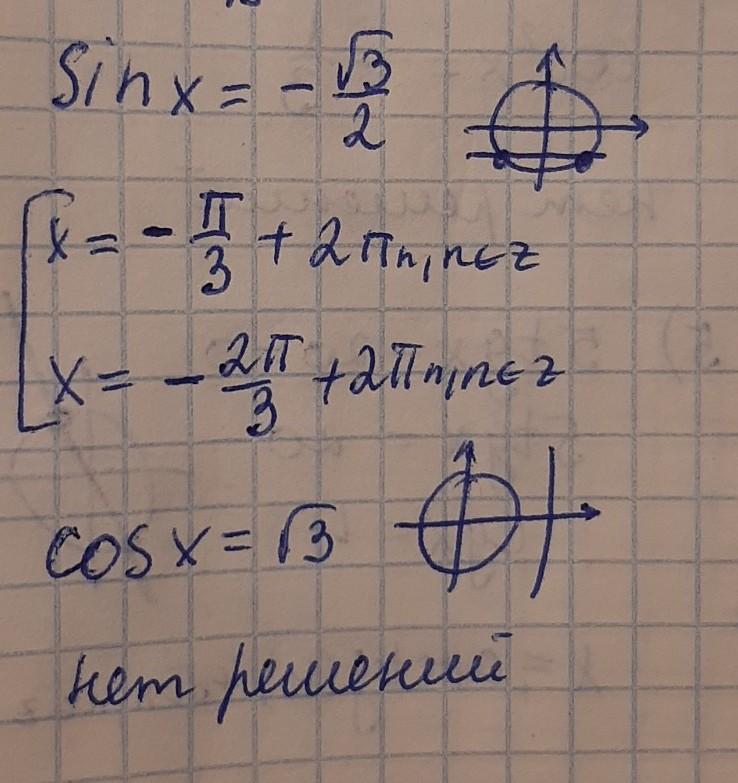 sin x = - √3/2
x = - π/3 + 2πn, n∈z
x = - 2π/3 + 2πn, n∈z
cos x = √3
нет решений